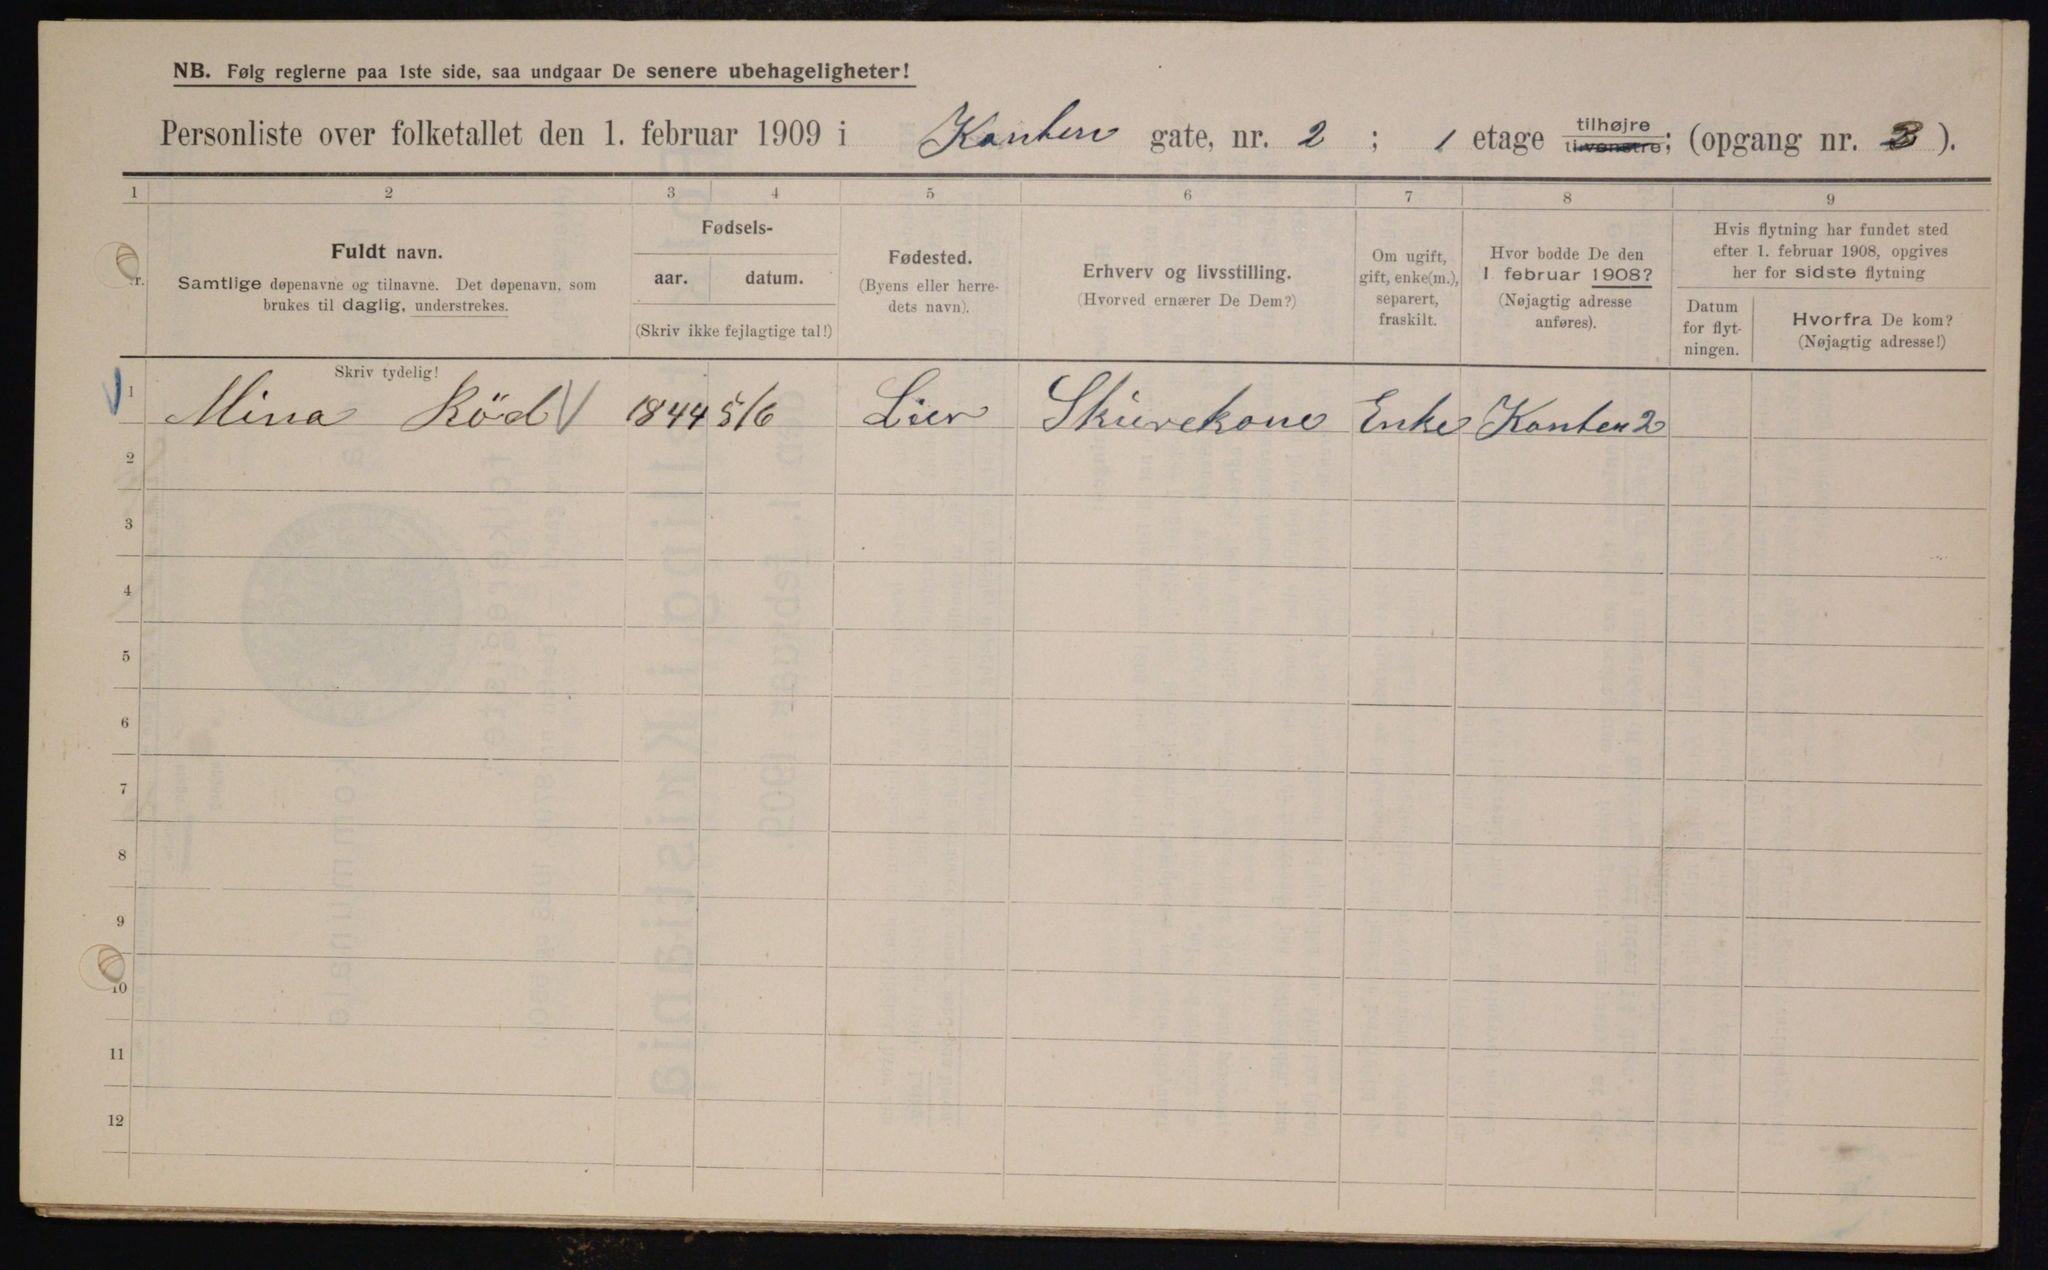 NB. Følg reglerne paa 1ste side, saa undgaar De senere ubehageligheter!
Personliste over folketallet den 1. februar 1909 i Kanten gate, nr. 2 ; 1 etage tilhøjre tilvenstre; (opgang nr. ).
1 2 3 4 5 6 7 8 9
Fuldt navn.
Samtlige døpenavne og tilnavne. Det døpenavn, som
brukes til daglig, understrekes.
Fødsels-
aar. datum.
(Skriv ikke fejlagtige tal!)
Fødested.
(Byens eller herre-
dets navn).
Erhverv og livsstilling.
(Hvorved ernærer De Dem?)
Om ugift,
gift, enke(m.),
separert,
fraskilt.
Hvor bodde De den
1. februar 1908?
(Nøjagtig adresse
anføres).
Hvis flytning har fundet sted
efter 1. februar 1908, opgives
her for sidste flytning
Datum
for flyt-
ningen.
Hvorfra De kom?
(Nøjagtig adresse!)
Skriv tydelig!
1 Mina Röd 1844 5/6 Lier Skurekone Enke Kanten 2
2
3
4
5
6
7
8
9
10
11
12